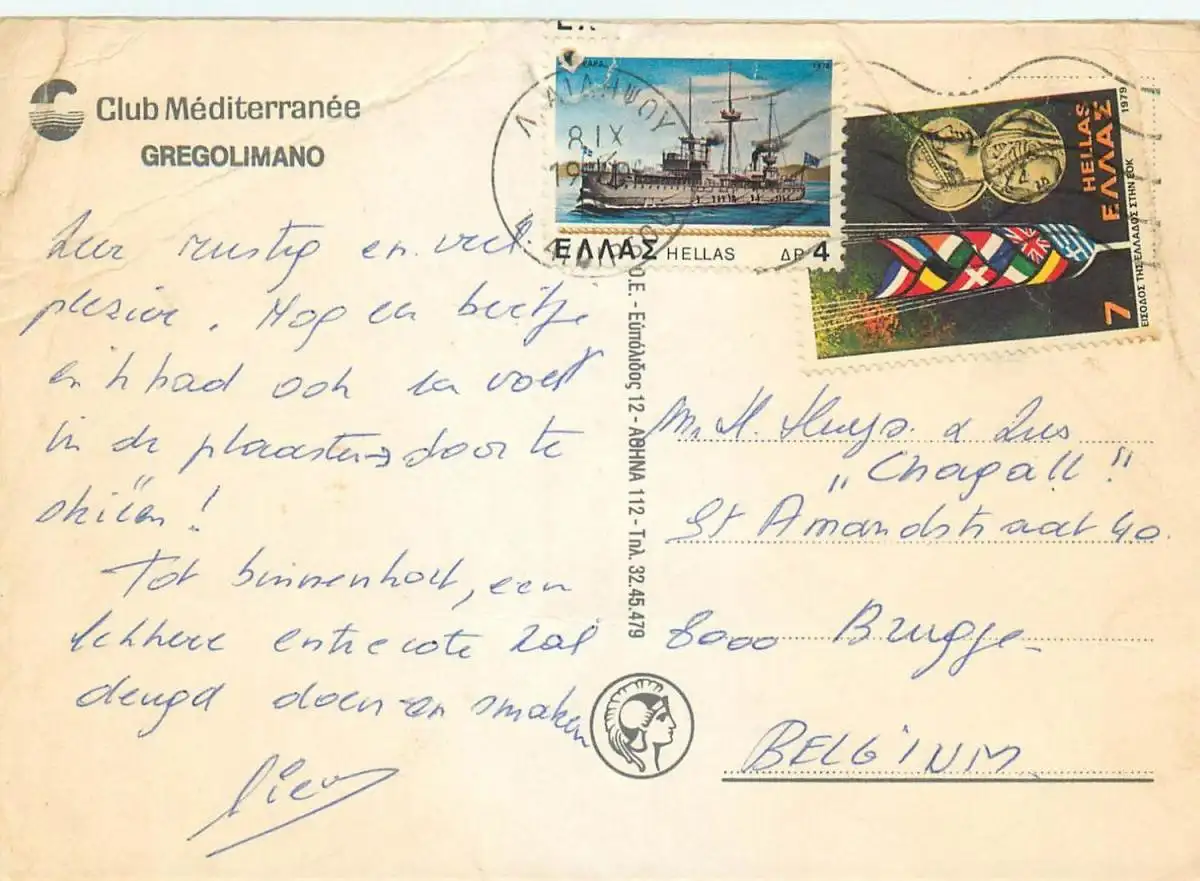 Club Méditerranée
GREGOLIMANO
Zeer rustig en veel
plezier. Nog een beetje
in de plaaster door te
skiën!
Tot binnenkort, een
lekkere entrecote zal
deugd doen en smaken
Liev
8 IX
ΕΛΛΑΣ HELLAS ΔΡ 4
1978
HELLAS
ΕΛΛΑΣ
1979
ΕΙΣΟΔΟΣ ΤΗΣ ΕΛΛΑΔΟΣ ΣΤΗΝ ΕΟΚ
7
Ο.Ε. - Ευπόλιδος 12 - ΑΘΗΝΑ 112 - Τηλ. 32.45.479
Mr. H. Huys &
„Chagall"
St Amandstraat 40.
8000 Brugge
BELGIUM